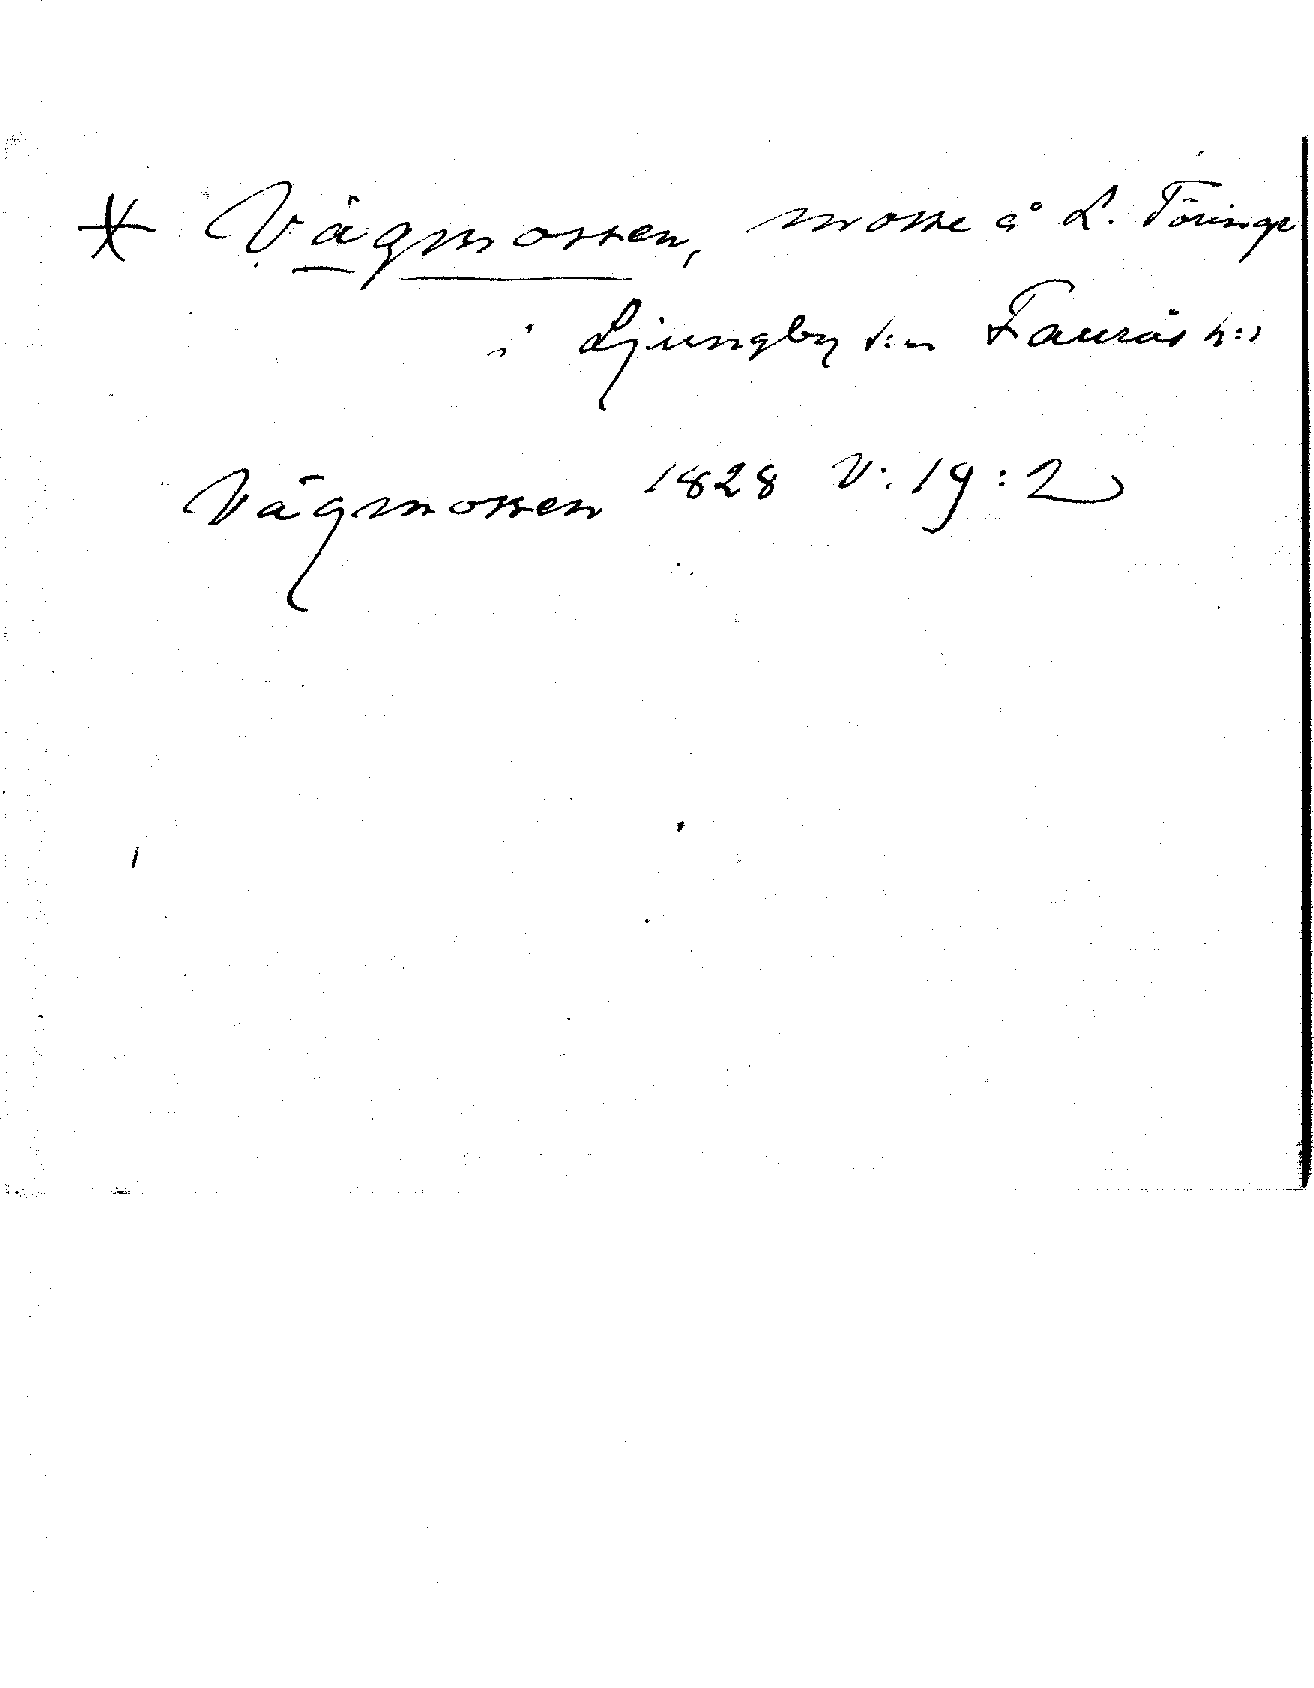 * Vägmossen, mosse å L. Töringe
i Ljungby s:n Faurås h:d
Vägmossen 1828 V:19:2